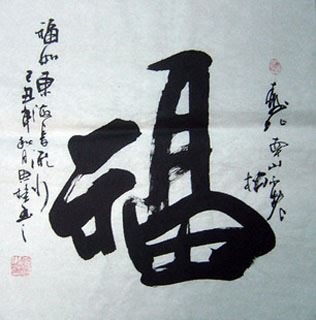 壽比南山不老松
福
福如東海長流水
己丑年秋月